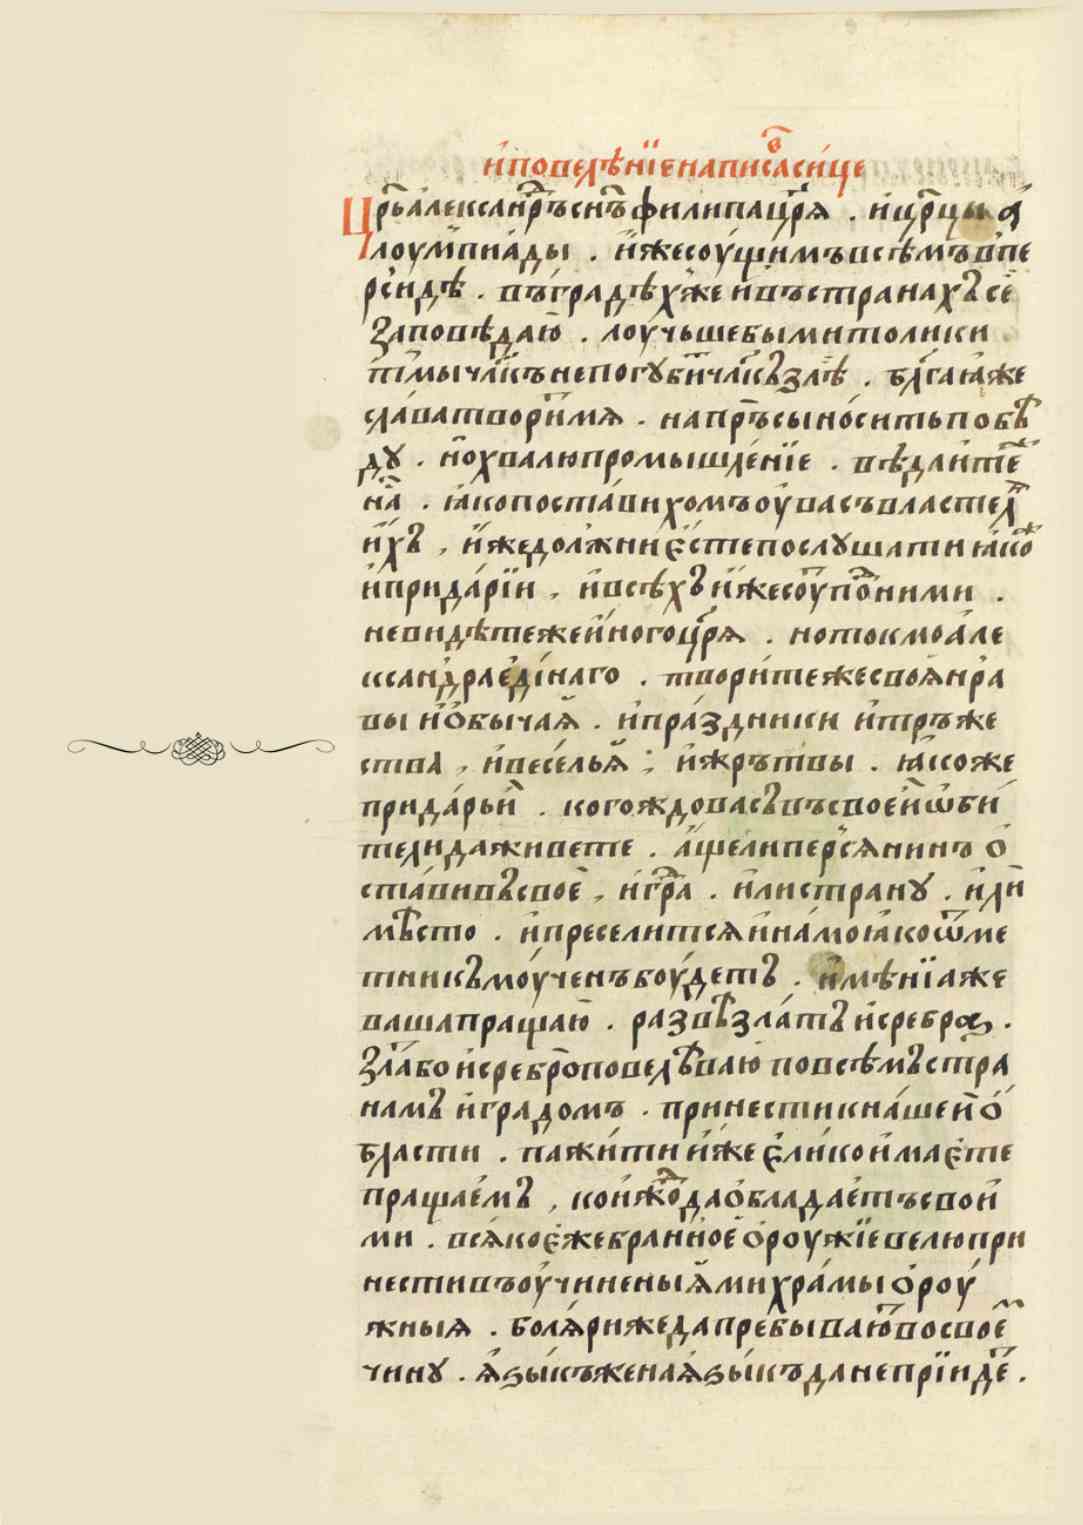 и҆повелѣнїенаписа̑сице
Цр҃ьа҆леѯанⷣръсн҃ъфилипацр҃я . и҆цр҃цы а҆
лоумпиады . и҆жесоущимъвсѣмъвпе
рсидѣ . въградѣхжеивъстранахъсеⷨ
заповѣдаюⷮ . лоучьшебымитолики
тмычл҃къпогꙋбитичл҃къзлѣ
славатворимѧ . напръсыноситьпобѣ
дꙋ . ноⷯхвалюпромышленїе . вѣдаите
на . ꙗкопоставихомъоувасъвластел
ихъ , и҆жедолжниестепослꙋшатиꙗкоⷤ
и҆придарїи , и҆всѣхъи҆жесоуⷮпоⷣними .
невидѣтежеиногоцр҃ѧ . нотокмоале
ксандраединаго . творитежесвоѧнра
выиобычаѧ . и҆праздники и҆тръже
ства , и҆веселья ; и҆жрътвы . ꙗкоже
придарьи . когождовасъвъсвоеиѡби
телидаживете . а҆щелиперсѧнинъ о
ставивъсвое , и҆граⷣ . и҆листранꙋ . и҆ли
мѣсто . и҆преселитсѧинамоꙗкоѿме
тникъмоученъбоудетъ . и҆мѣнїаже
вашапращаю . развѣзлатъисребра .
злаⷮбоисребропоⷡелѣваю повсѣмъстра
намъ и҆градомъ . принестикнашейо
бласти . пажитии҆жееликои҆маете
пращаемъ , коиⷤждаобладаетъсвои
ми . всѧкоежебранноеороужїевелюпри
нестивъоучиненыѧмихрамыороу
жныѧ . болѧрижедапребываютвосвоеⷨ
чинꙋ . ѧзыкъженаѧзыкъданепрїидеⷮ .